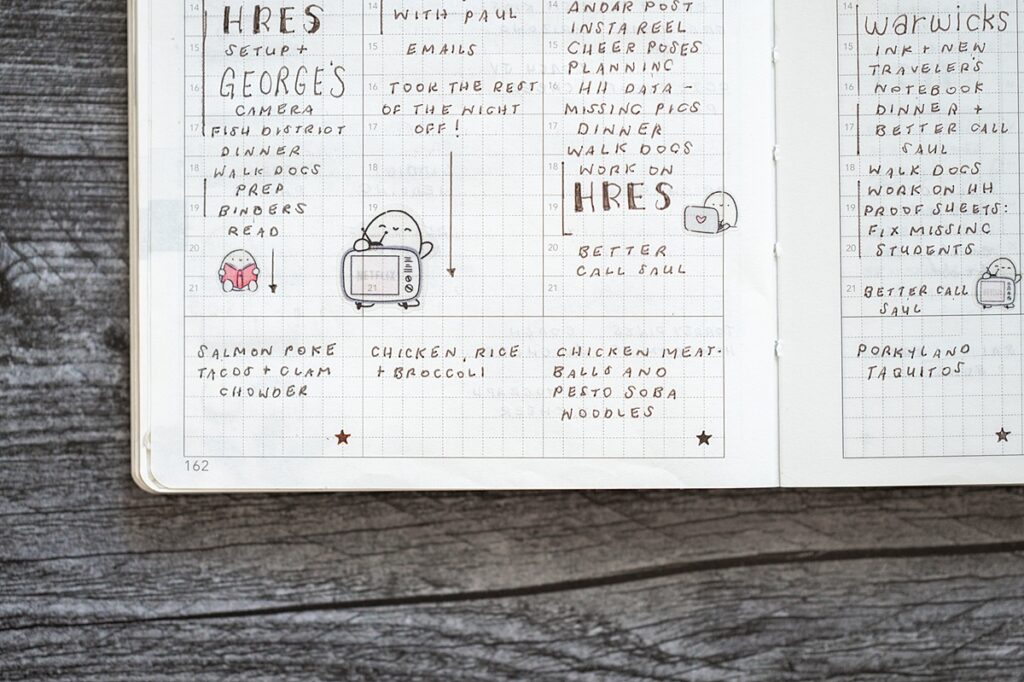 14
HRES
15
SETUP +
GEORGE'S
CAMERA
17
FISH DISTRICT
DINNER
18
WALK DOGS
PREP
19
BINDERS
READ
20
21
SALMON POKE
TACOS + CLAM
CHOWDER
162
14
WITH PAUL
15
EMAILS
16
TOOK THE REST
OF THE NIGHT
17
OFF!
18
19
20
21
CHICKEN, RICE
+ BROCCOLI
14
ANDAR POST
INSTA REEL
15
CHEER POSES
PLANNING
16
HH DATA -
MISSING PICS
17
DINNER
WALK DOGS
18
WORK ON
HRES
19
20
BETTER
CALL SAUL
21
CHICKEN MEAT-
BALLS AND
PESTO SOBA
NOODLES
14
warwicks
15
INK + NEW
TRAVELER'S
16
NOTEBOOK
DINNER +
17
BETTER CALL
SAUL
18
WALK DOGS
WORK ON HH
19
PROOF SHEETS:
FIX MISSING
20
STUDENTS
21
BETTER CALL
SAUL
PORKYLAND
TAQUITOS